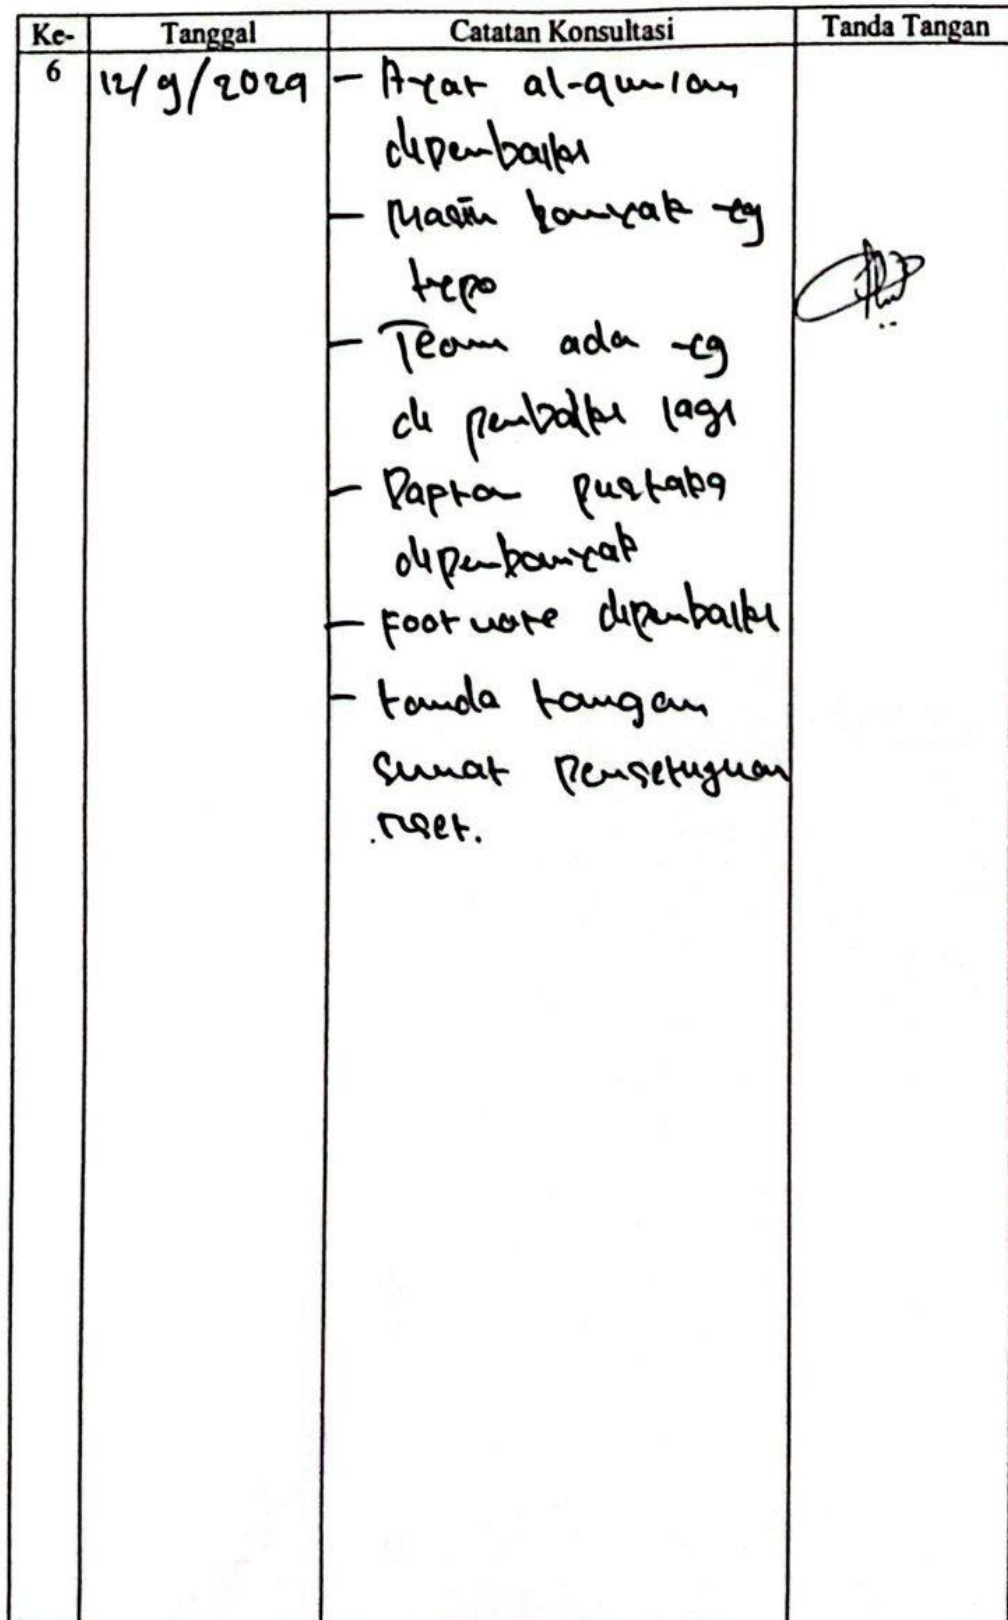 Ke- Tanggal Catatan Konsultasi Tanda Tangan
6 12/9/2024 - Ayat al-qur'an
diperbaiki
- Masih banyak yg
typo
- Teori ada yg
di perbaiki lagi
- Daptar pustaka
diperbanyak
- Footnote diperbaiki
- tanda tangan
surat persetujuan
riset.